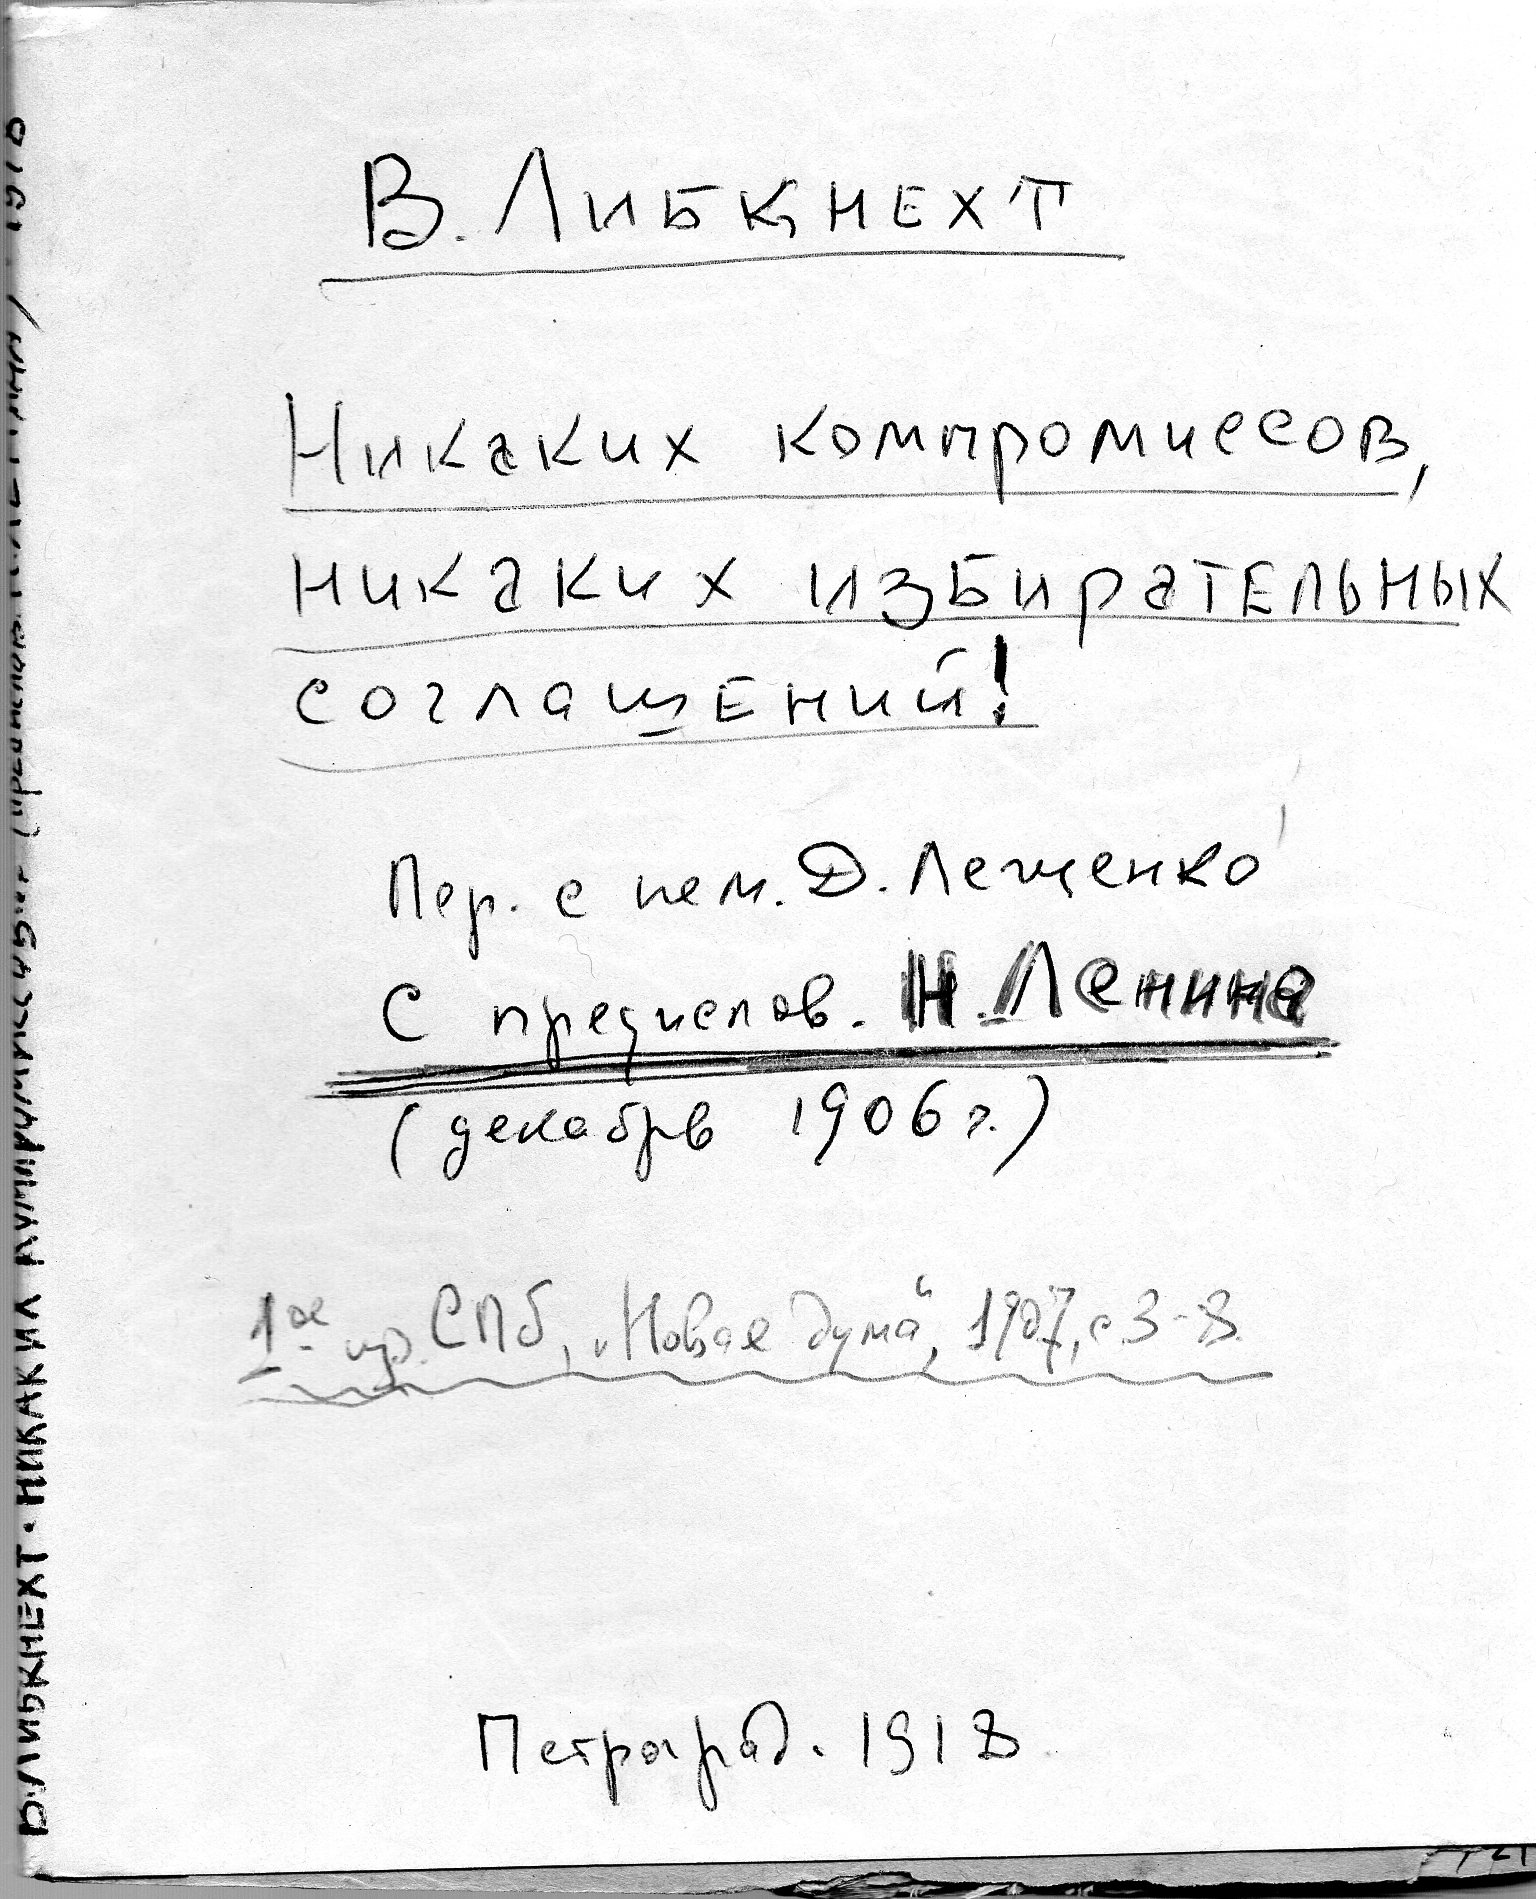 В. Либкнехт
Никаких компромиссов,
никаких избирательных
соглашений!
Пер. с нем. Д. Лещенко
С предислов. Н. Ленина
(декабрь 1906 г.)
1ое пр. СПб, „Новая дума“, 1907, с. 3-8.
Петроград. 1918
В. ЛИБКНЕХТ · НИКАКИХ